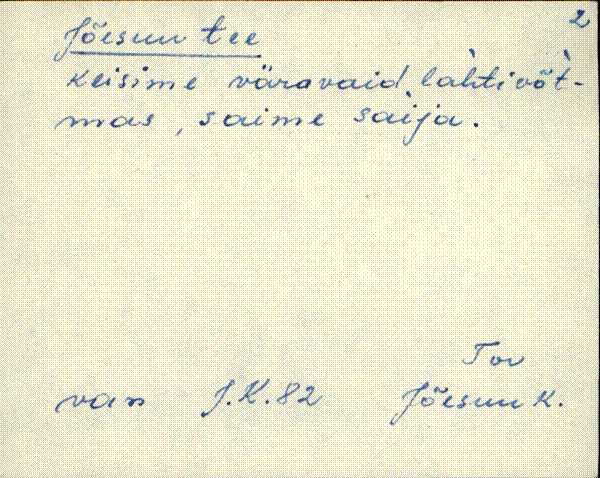 2
Jõesuu tee
keisime väravaid, làhtivõt̀-
mas, saime saija.
Tor
van J.K.82 Jõesuu k.